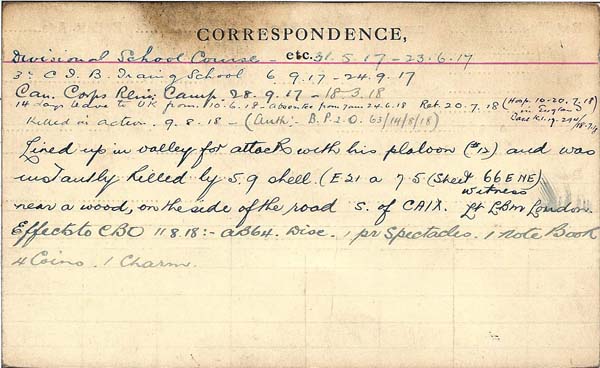 CORRESPONDENCE,
etc.
Divisional School Course - 31.5.17 - 23.6.17
3rd C.I.B. Traing School 6.9.17 - 24.9.17
Can. Corps Rein. Camp. 28.9.17 - 18-3.18
14 days leave to UK from. 10.6.18 - absentee from 7am 24.6.18 Ret. 20.7.18 (Hosp. 10-20.7.18)
in England
Killed in action. 9.8.18 - (Auth:- B.P.2.O. 63/14/8/18)
Lined up in valley for attack with his platoon (#12) and was
instantly killed by 5.9 shell. (E21 a 7.5 (Sheet 66E NE)
Witness
near a wood, on the side of the road S. of CAIX. Lt London.
Effects to CBO 11.8.18:- AB64. Disc. 1 pr Spectacles. 1 note Book
4 Coins. 1 Charm.